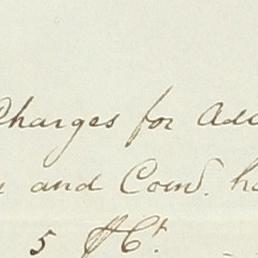 Charges for Add
and Com.d ha
5 P Ct.